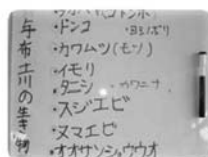 与布土川の生き物
・ドンコ ・ヨシノボリ
・カワムツ(モツ)
・イモリ
・タニシ ・カワニナ
・スジエビ
・ヌマエビ
・オオサンショウウオ